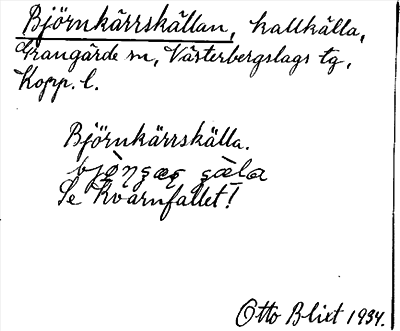 Björnkärrskällan, kallkälla,
Grangärde sn, Västerbergslags tg,
Kopp. l.
Björnkärrskälla.
Se Kvarnfallet!
Otto Blixt 1934.